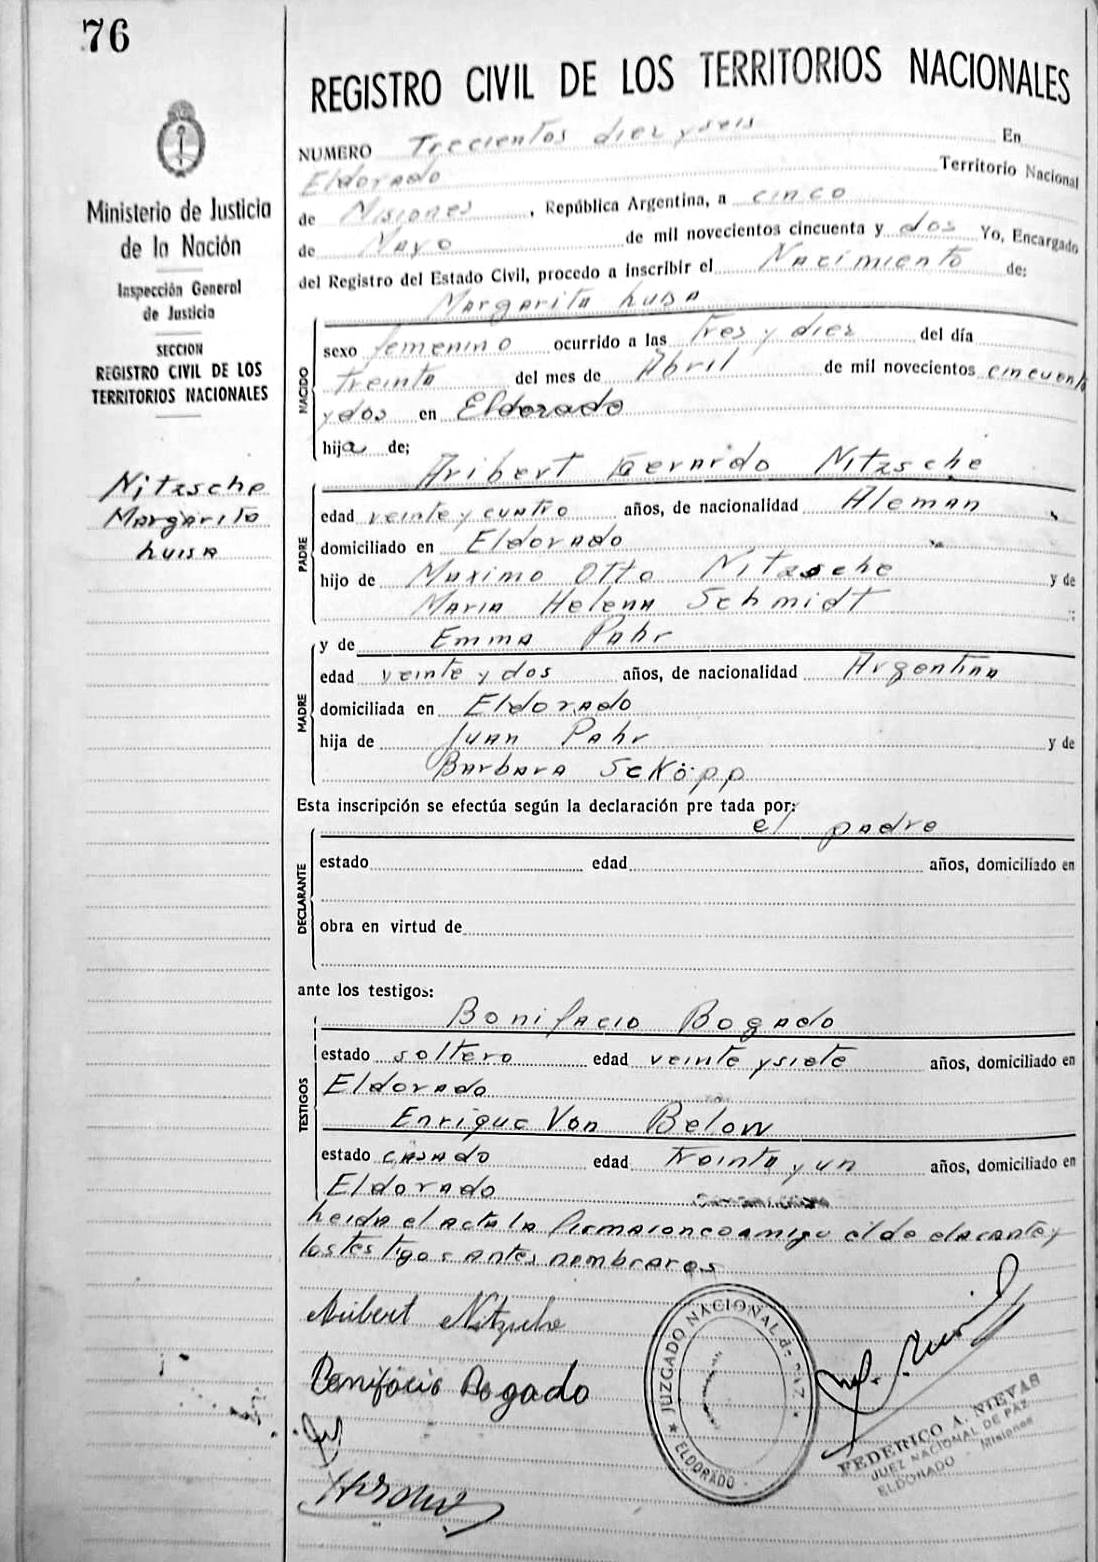 76
REGISTRO CIVIL DE LOS TERRITORIOS NACIONALES
Ministerio de Justicia
de la Nación
Inspección General
de Justicia
SECCION
REGISTRO CIVIL DE LOS
TERRITORIOS NACIONALES
Nitzsche
Margarita
Luisa
NUMERO Trecientos diez y seis En
Eldorado Territorio Nacional
de Misiones, República Argentina, a cinco
de Mayo de mil novecientos cincuenta y dos Yo, Encargado
del Registro del Estado Civil, procedo a inscribir el Nacimiento de:
Margarita Luisa
NACIDO
sexo femenino ocurrido a las tres y diez del día
treinta del mes de Abril de mil novecientos cincuenta
y dos en Eldorado
hija de;
Aribert Gerardo Nitzsche
PADRE
edad veinte y cuatro años, de nacionalidad Aleman
domiciliado en Eldorado
hijo de Maximo Otto Nitzsche y de
Maria Helena Schmidt
y de Emma Pahr
MADRE
edad veinte y dos años, de nacionalidad Argentina
domiciliada en Eldorado
hija de Juan Pahr y de
Barbara Scköpp
Esta inscripción se efectúa según la declaración pre tada por:
el padre
DECLARANTE
estado edad años, domiciliado en
obra en virtud de
ante los testigos:
Bonifacio Bogado
TESTIGOS
estado soltero edad veinte y siete años, domiciliado en
Eldorado
Enrique Von Below
estado casado edad treinta y un años, domiciliado en
Eldorado
Leida el acta la firmaron conmigo el declarante y
los testigos antes nombrados
Aribert Nitzsche
Bonifacio Bogado
JUZGADO NACIONAL de PAZ
ELDORADO
FEDERICO A. NIEVAS
JUEZ NACIONAL DE PAZ
ELDORADO - Misiones